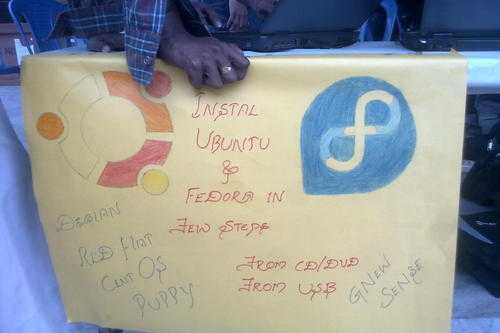 INSTAL
UBUNTU
&
FEDORA IN
FEW STEPS
DEBIAN
RED HAT
CENT OS
PUPPY
FROM CD/DVD
FROM USB
GNEW
SENSE